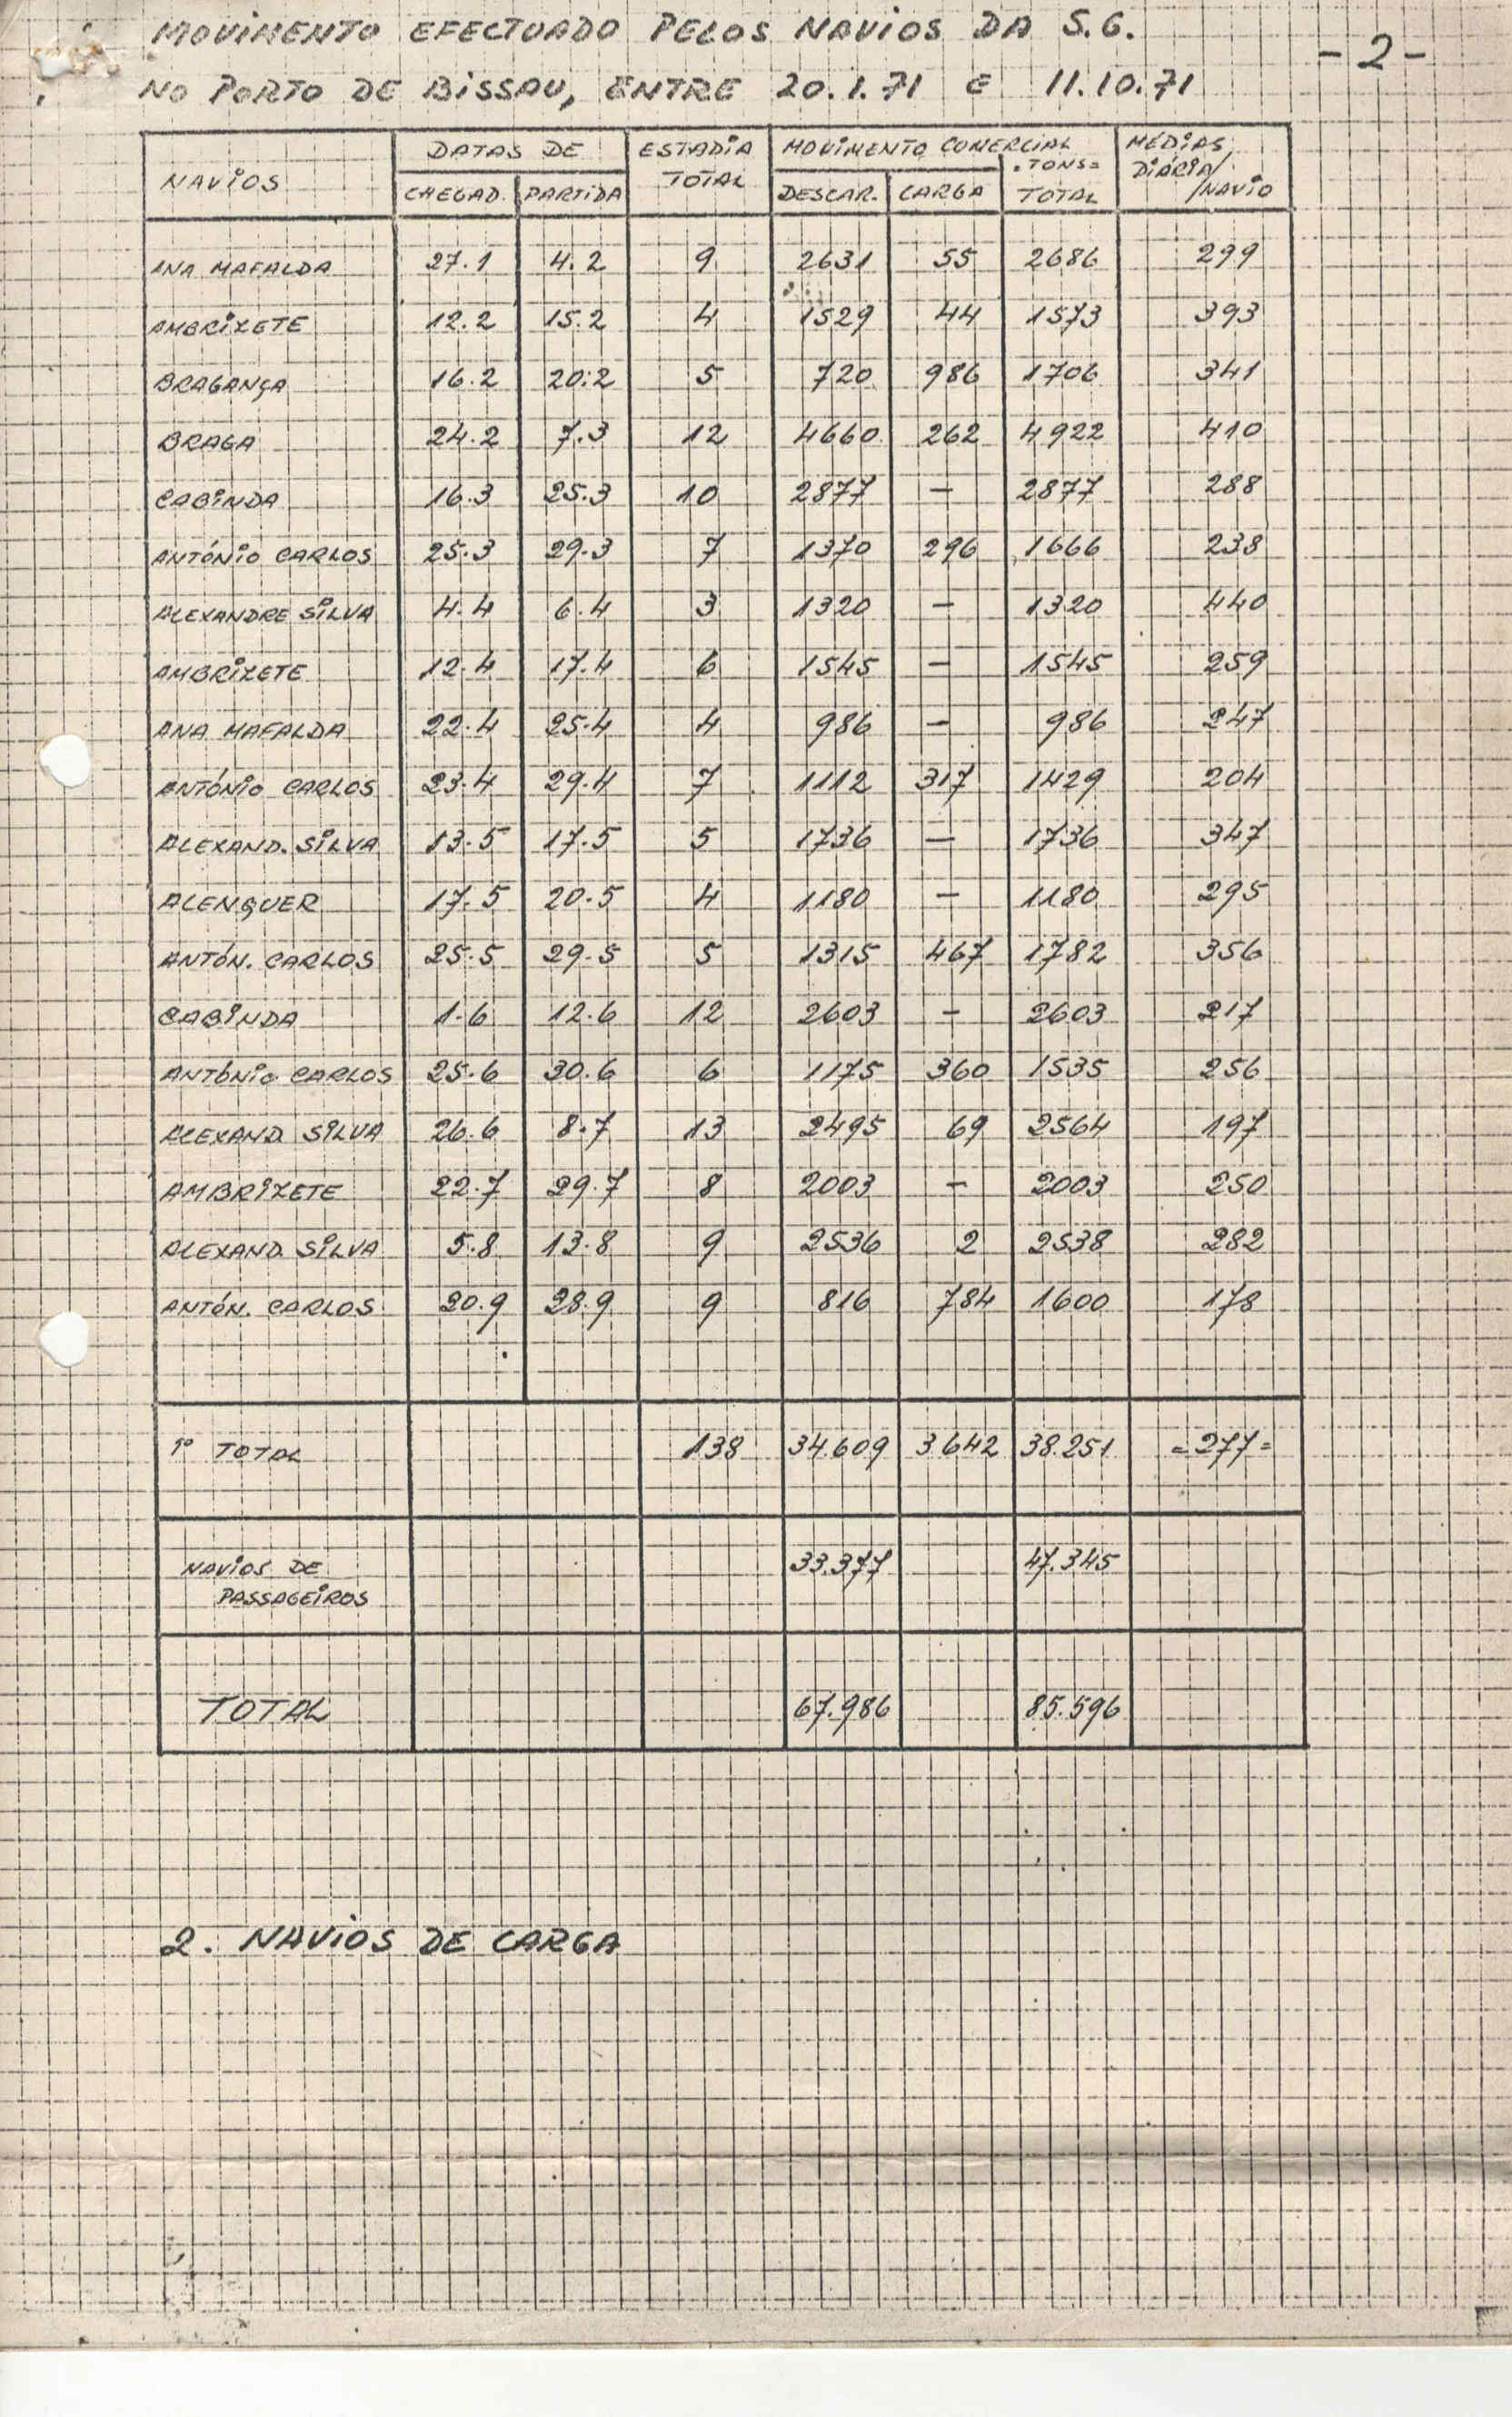 MOVIMENTO EFECTUADO PELOS NAVIOS DA S.G.
- 2 -
NO PORTO DE BISSAU, ENTRE 20.1.71 E 11.10.71
NAVIOS DATAS DE ESTADIA TOTAL MOVIMENTO COMERCIAL .TONS= MÉDIAS DIÁRIA/ /NAVIO
CHEGAD. PARTIDA DESCAR. CARGA TOTAL
ANA MAFALDA 27.1 4.2 9 2631 55 2686 299
AMBRIZETE 12.2 15.2 4 1529 44 1573 393
BRAGANÇA 16.2 20.2 5 720 986 1706 341
BRAGA 24.2 7.3 12 4660 262 4922 410
CABINDA 16.3 25.3 10 2877 - 2877 288
ANTÓNIO CARLOS 25.3 29.3 7 1370 296 1666 238
ALEXANDRE SILVA 4.4 6.4 3 1320 - 1320 440
AMBRIZETE 12.4 17.4 6 1545 - 1545 259
ANA MAFALDA 22.4 25.4 4 986 - 986 247
ANTÓNIO CARLOS 23.4 29.4 7 1112 317 1429 204
ALEXAND. SILVA 13.5 17.5 5 1736 - 1736 347
ALENQUER 17.5 20.5 4 1180 - 1180 295
ANTÓN. CARLOS 25.5 29.5 5 1315 467 1782 356
CABINDA 1.6 12.6 12 2603 - 2603 217
ANTÓNIO CARLOS 25.6 30.6 6 1175 360 1535 256
ALEXAND SILVA 26.6 8.7 13 2495 69 2564 197
AMBRIZETE 22.7 29.7 8 2003 - 2003 250
ALEXAND. SILVA 5.8 13.8 9 2536 2 2538 282
ANTÓN. CARLOS 20.9 28.9 9 816 784 1600 178
1º TOTAL 138 34.609 3.642 38.251 =277=
NAVIOS DE 33.377 47.345
PASSAGEIROS
TOTAL 67.986 85.596
2. NAVIOS DE CARGA